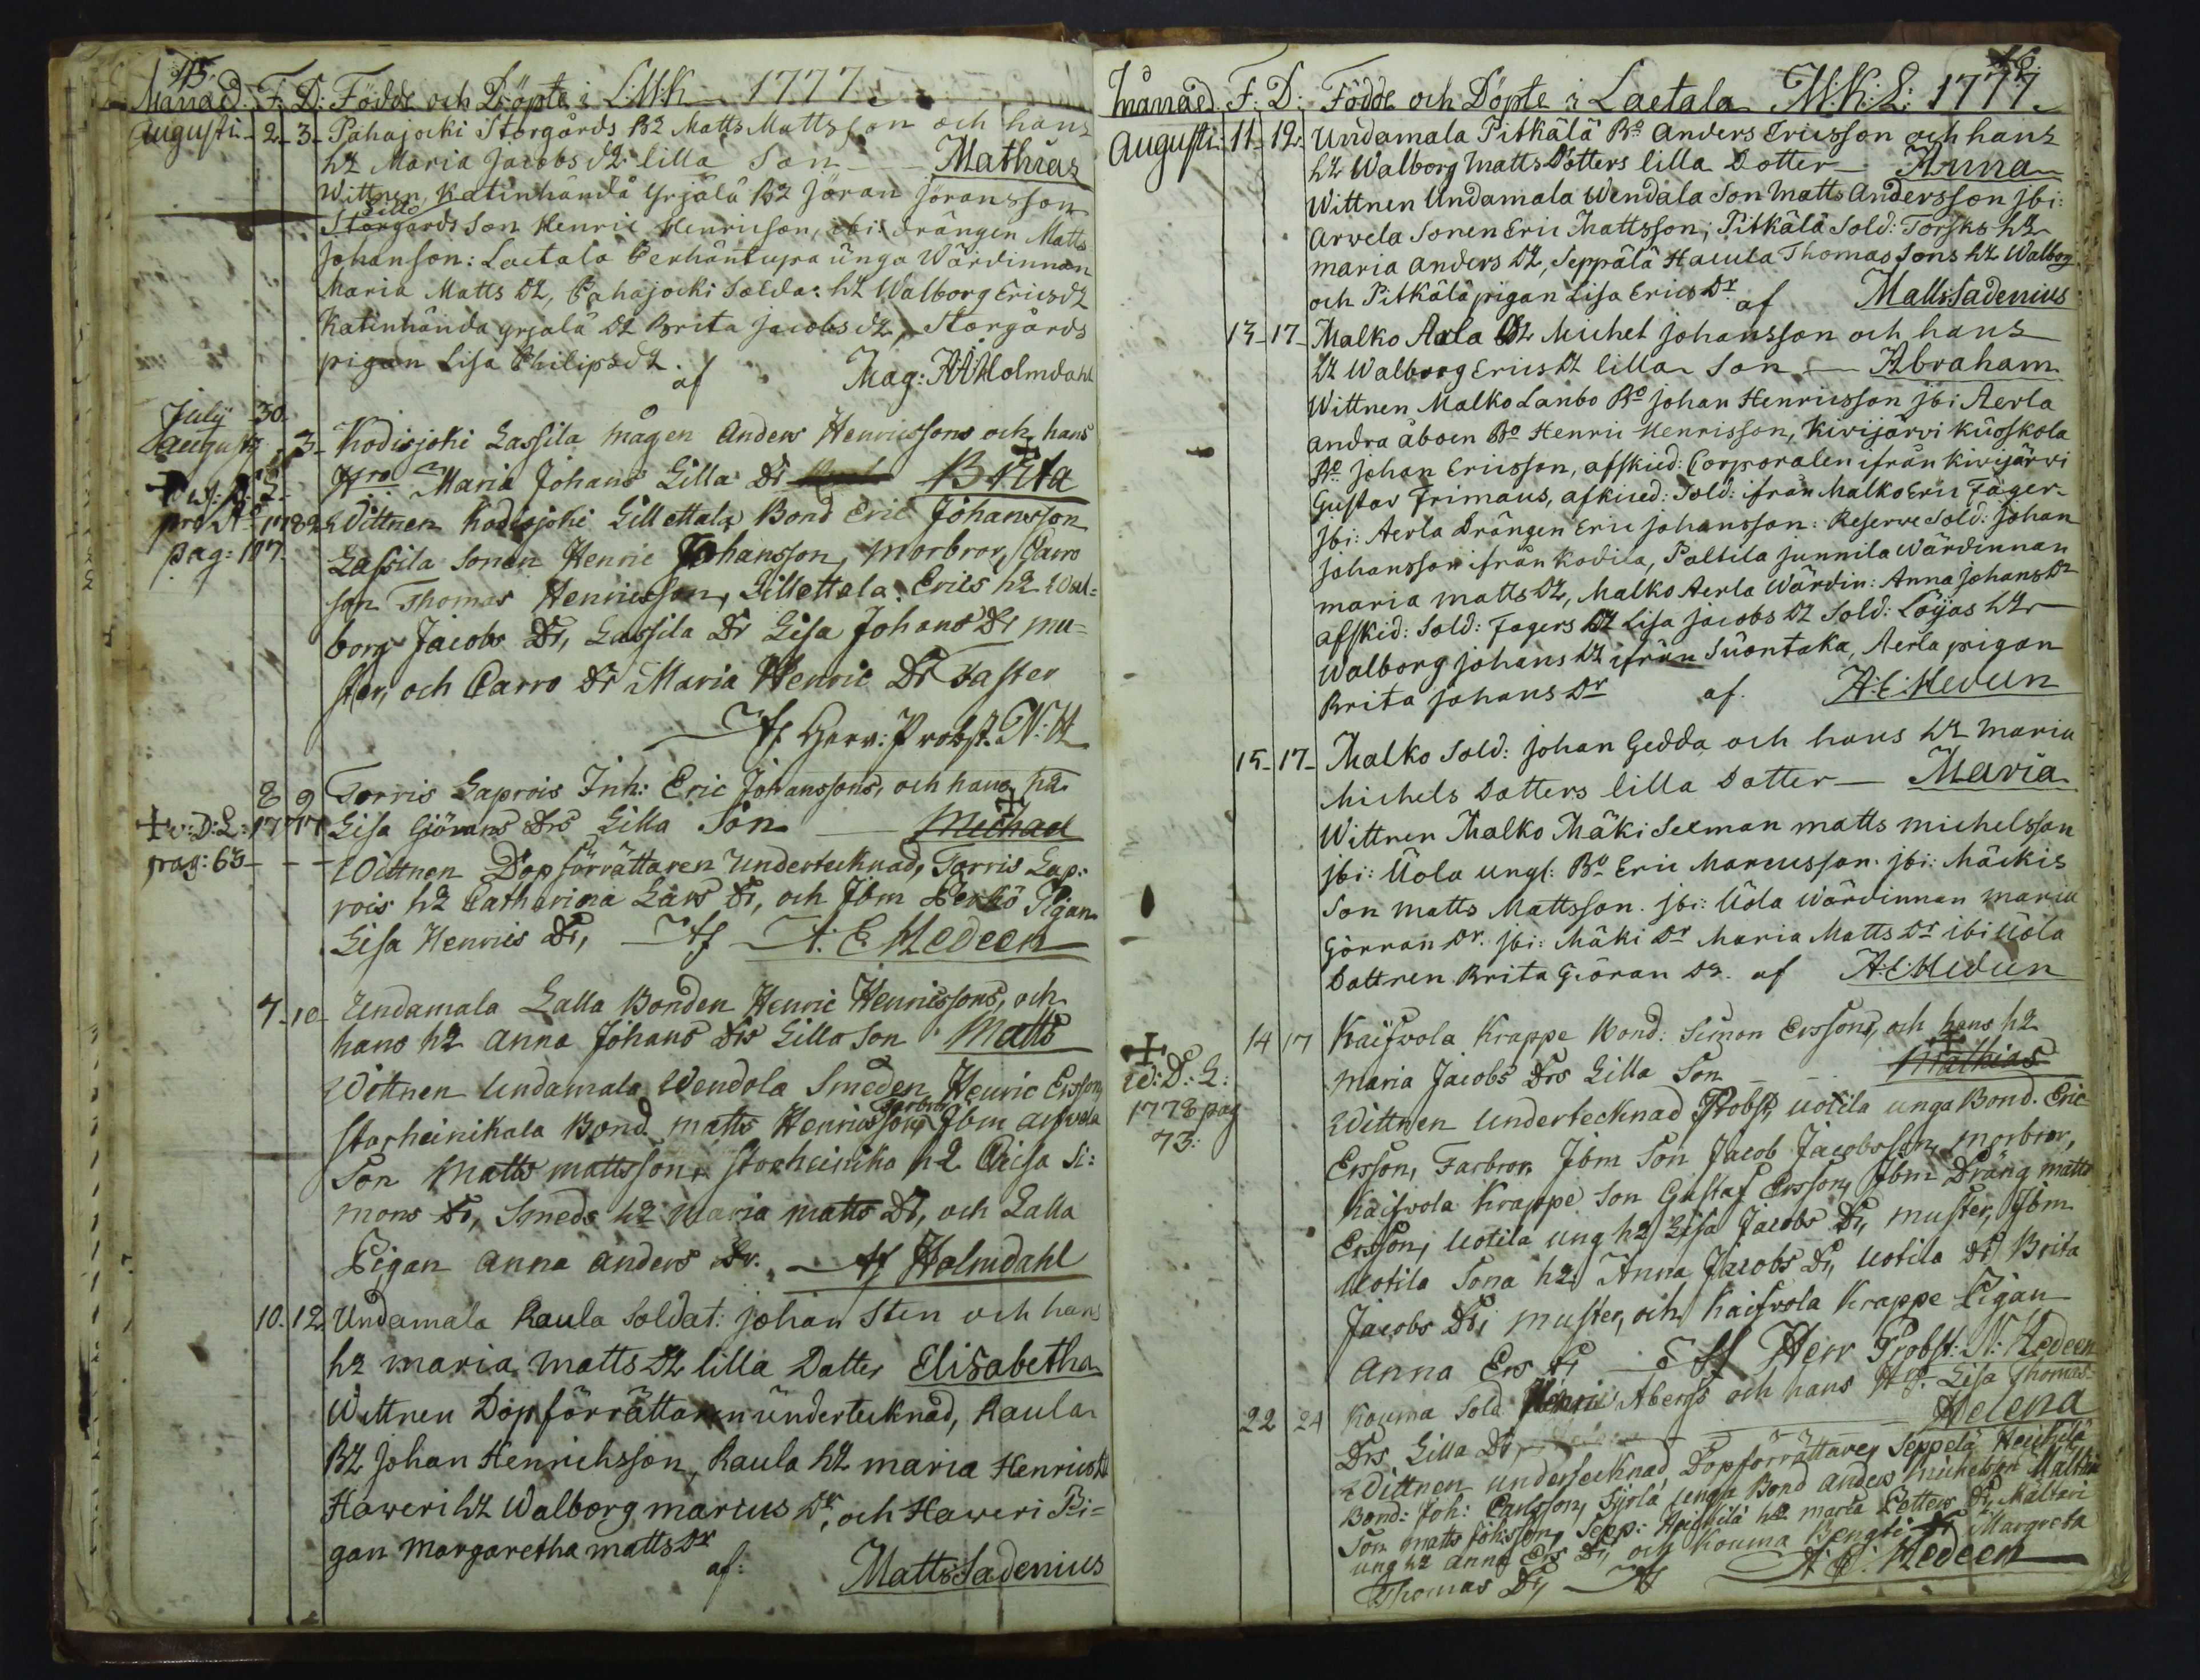 45.
Månad. F. D: Födde och Döpte i L:M:K 1777
Augusti. 2. 3. Pahajocki Storgårds B2 Matts Mattsson och hans
h2 Maria Jacobs d2 lilla Son Mathias
Wittnen, Katinhända Yrjälä B2 Jöran Jöransson
Lillo
Storgårds Son Henric Henricson, ibi: drängen Matts
Johanson: Laetala Perhäntupa unga Wärdinnan
Maria Matts D2, Pahajocki Solda: h2 Walborg Erics d2
Katinhända Yrjälä D2 Brita Jacobs d2, Storgårds
pigan Lisa Philips d2. af Mag: Holmdahl
July 30.
Augusti 3. Kodisjoki Lassila mågen Anders Henricssons och hans
H:ro Maria Johans Lilla Dr Brita
pro A:o 1782 Wittnen Kodisjoki Lillettala Bond Eric Johansson
pag: 177. Lassila Sonen Henric Johansson, morbror, Carro
son Thomas Henricsson, Lillettala Erics h2 Wal=
borg Jacobs Dr, Lassila Dr Lisa Johans Dr mu=
ster, och Carro Dr Maria Henric Dr Faster
Af Herr: Probst. N. H
8 9 Torris Laprois Inh: Eric Johanssons, och hans h2
v: D: L: 1777 Lisa Giörans Drs Lilla Son Michael
pag: 63 Wittnen Dopförrättaren undertecknad, Torris Lap:
rois h2 Catharina Lars Dr, och Ibm Perkö Pigan
Lisa Henrics Dr, Af A. E Hedeen
7. 10 Undamala Lalla Bonden Henric Henricssons, och
hans h2 Anna Johans Drs Lilla Son Matts
Wittnen Undamala Wendola Smeden Henric Ersson
Farbror
Storheinikala Bond matts Henricsson, Ibm arfwela
Son Matts mattsson, Storheinika h2 Lisa Si:
mons Dr, Smeds h2 Maria matts Dr, och Lalla
Pigan Anna Anders Dr. Af Holmdahl
10. 12 Undamala Raula Soldat: johan Sten och hans
h2 maria matts D2 lilla Dotter Elisabetha
Wittnen Döpförrättaren undertecknad, Raula
B2 Johan Henrichsson, Raula h2 maria Henrics D2
Haweri h2 Walborg marcus Dr, och Haweri Pi=
gan Margaretha matts Dr
af: Matts Sadenius
46.
Månad. F. D: Födde och Döpte i Laetala M:K:L: 1777.
Augusti: 11. 12. Undamala Pitkälä Bo Anders Ericsson och hans
h2 Walborg matts Dotters lilla Dotter Anna
Wittnen Undamala Wendala Son matts Andersson jbi:
Arwela Sonen Eric Mattsson, Pitkälä Sold: Torsks h2
maria Anders D2, Seppälä Haeula Thomas Sons h2 Walborg
och Pitkälä pigan Lisa Erics Dr. af Matts Sadenius
13 17 Malko Aerla B2 Michel johansson och hans
h2 Walborg Erics D2 lilla Son Abraham
Wittnen Malko Lanbo Bo Johan Henricsson jbi Aerla
andra åboen Bo Henric Henrisson, Kivijärvi Kuoskola
Bo johan Ericsson, afskied: Corporalen ifrån Kivijärvi
Gustav Frimans, afskied: Sold: ifrån Malko Eric Fäger
jbi: Aerla Drängen Eric johansson: Reserve Sold: johan
johansson ifrån Kodila, Paltila junnila Wärdinnan
maria matts D2, Malko Aerla Wärdin: Anna johans D2
afskid: Sold: Fagers D2 Lisa jacobs D2 Sold: Löijas h2
Walborg johans D2 ifrån Suontaka, Aerla pigan
Brita johans Dr af. A: E: Hedeen
15 17 Malko Sold: johan Gedda och hans h2 maria
Michels Dotters lilla Dotter Maria
Wittnen Malko Mäki Seeman matts michelsson
jbi: Uola ungl: Bo Eric Marcusson. jbi: Mäckis
Son matts Mattsson. jbi: Uola Wärdinnan maria
Görran Dr. jbi: Mäki Dr Maria Matts Dr ibi Uola
Dottren Brita Giöran D2. af A: E: Hedeen
14 17 Kaisvola Krappe Bond: Simon Erssons, och hans h2
w: D: L: Maria Jacobs Drs Lilla Son Mathias
1778 pag Wittnen undertecknad Probst, Uotila unga Bond. Eric
73: Ersson, Farbror. Ibm Son Jacob Jacobsson, morbror,
Kaisvola Krappe Son Gustaf Ersson, Ibm Dräng matts
Ersson, Uotila ung h2 Lisa Jacobs Dr, muster, Ibm
Uotila Sona h2: Anna Jacobs Dr, Uotila Dr Brita
Jacobs Dr, muster, och Kaisvola Krappe Pigan
Anna Ers Dr Af Herr Probst: N: Hedeen
22 24 Kouma Sold Henric Åbergs och hans H2. Lisa Thomas
Drs Lilla Dr, Helena
Wittnen undertecknad Dopförrättare, Seppelä Heickilä
Bond: Joh: Carlsson, Syrlä unga Bond Anders Michelson Maltari
Son matts Johsson, Sepp: Heickilä h2 maria Petters Dr, Maltari
ung h2 Anna Ers Dr, och Kouma Bengti Dr Margreta
Thomas Dr, Af A. E. Hedeen